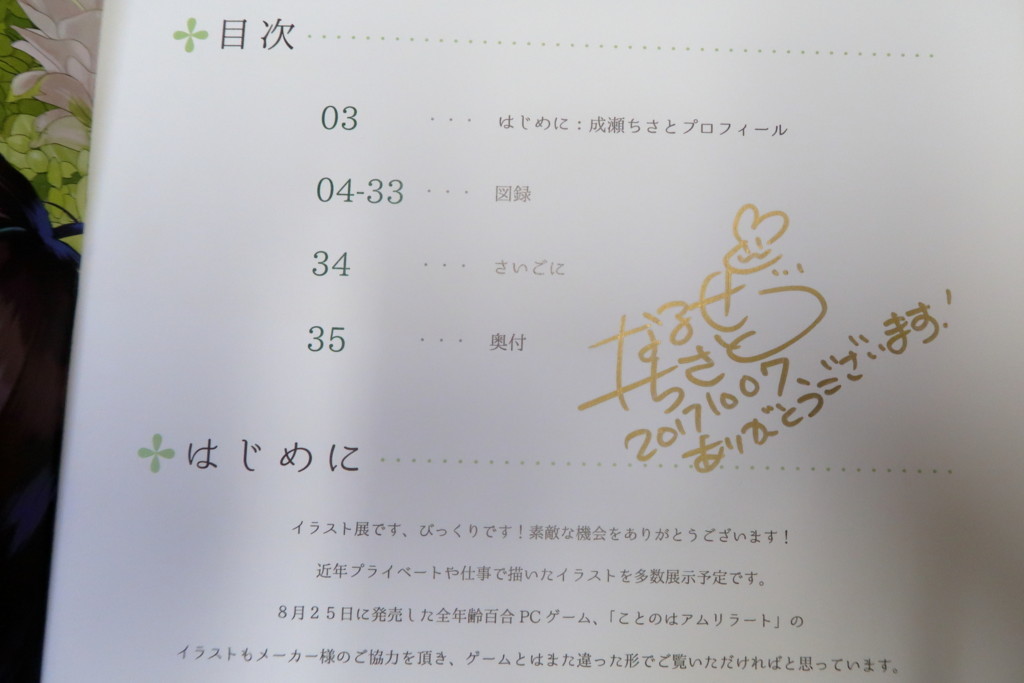 目次
03 ・・・ はじめに：成瀬ちさとプロフィール
04-33 ・・・ 図録
34 ・・・ さいごに
35 ・・・ 奥付
なるせ
ちさと
20171007
ありがとうございます！
はじめに
イラスト展です、びっくりです！素敵な機会をありがとうございます！
近年プライベートや仕事で描いたイラストを多数展示予定です。
８月２５日に発売した全年齢百合PCゲーム、「ことのはアムリラート」の
イラストもメーカー様のご協力を頂き、ゲームとはまた違った形でご覧いただければと思っています。